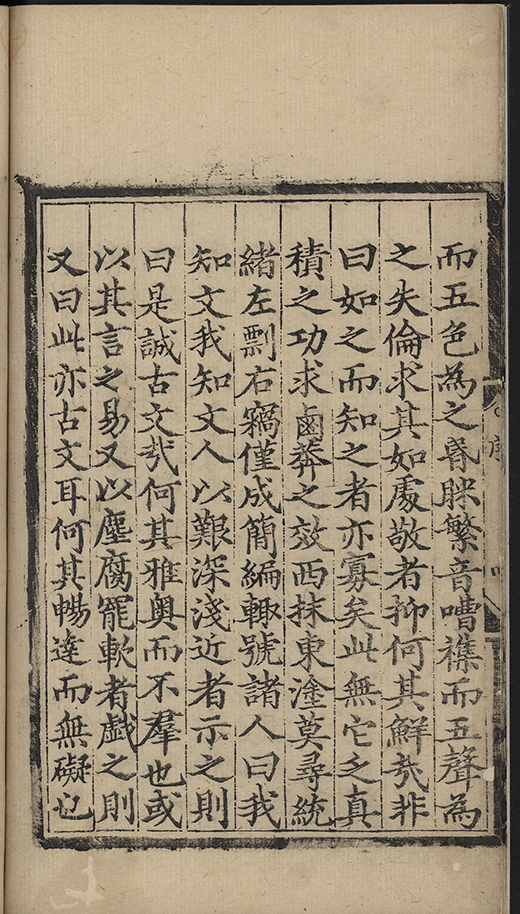 而五色為之昏眯繁音嘈襍而五聲為
之失倫求其如處敬者抑何其鮮㢤非
曰如之而知之者亦寡矣此無它乏真
積之功求鹵莾之效西抹東塗莫尋統
緒左剽右竊僅成簡編輙號諸人曰我
知文我知文人以艱深淺近者示之則
曰是誠古文㢤何其雅奥而不羣也或
以其言之易又以塵腐罷軟者戯之則
又曰此亦古文耳何其暢達而無礙也
序